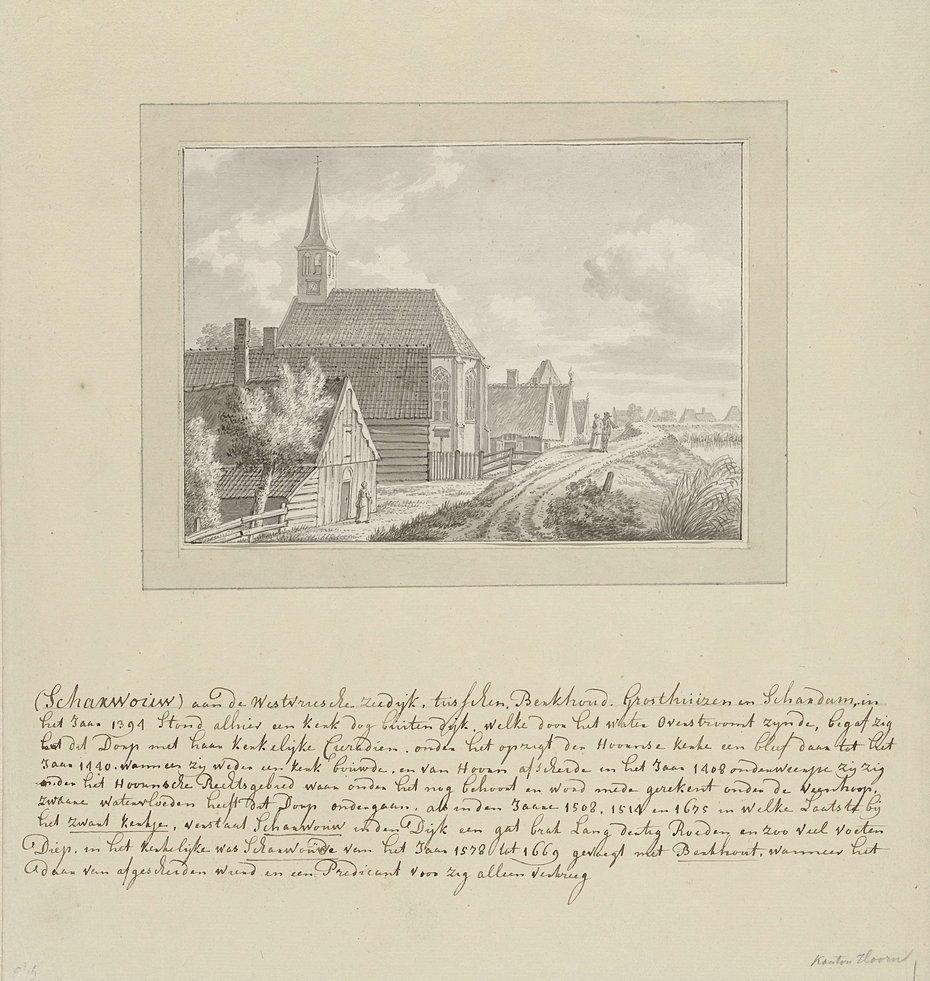 (Scharwouw) aan de Westvriesche Zeedijk, tusschen, Benkhoud. Groothuizen en Schardam, in
het Jaar 1394 Stond alhier een kerk dog buiten dijk, welke door het water Overstroomt zijnde, begaf zig
dit Dorp met haar kerkelijke Cieradien. onder het opzigt der Hoornse kerke een bleef daar tot het
Jaar 1440. wanneer zij weder een kerk bouwde. en van Hoorn afscheide in het Jaar 1408 onderwierpe zij zig
onder het Hoornsche Rechtsgebied waar onder het nog behoort en word mede gerekent onder de Veenhoop.
zwaare watervloeden heeft dit Dorp ondergaan. als in den Jaare 1508, 1514 en 1675 in welke Laatste bij
het zwart kerkje, verstaat Scharwouw in den Dijk een gat brak Lang dertig Roeden en zoo veel voeten
Diep. in het kerkelijke was Scharwoude van het Jaar 1578 tot 1669 gevoegt met Benkhout, wanneer het
daar van afgescheiden wierd en een Predicant voor zig alleen verkreeg
Kanton Hoorn